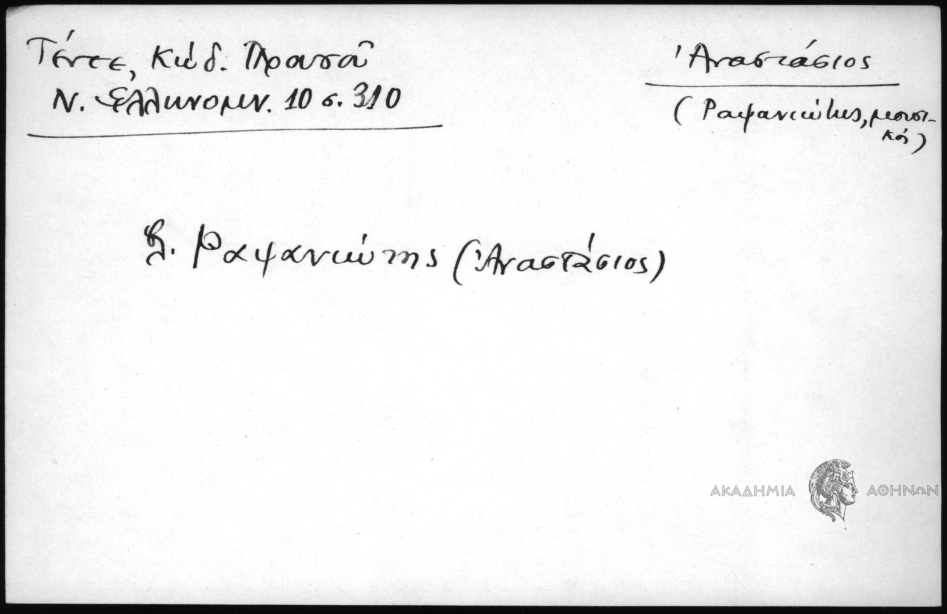 Τέντε, Κώδ. Πρασᾶ
Ν. Ἑλληνομν. 10 σ. 310
Ἀναστάσιος
(Ραψανιώτης, μουσι-
κός)
βλ. Ραψανιώτης (Ἀναστάσιος)
ΑΚΑΔΗΜΙΑ ΑΘΗΝΩΝ